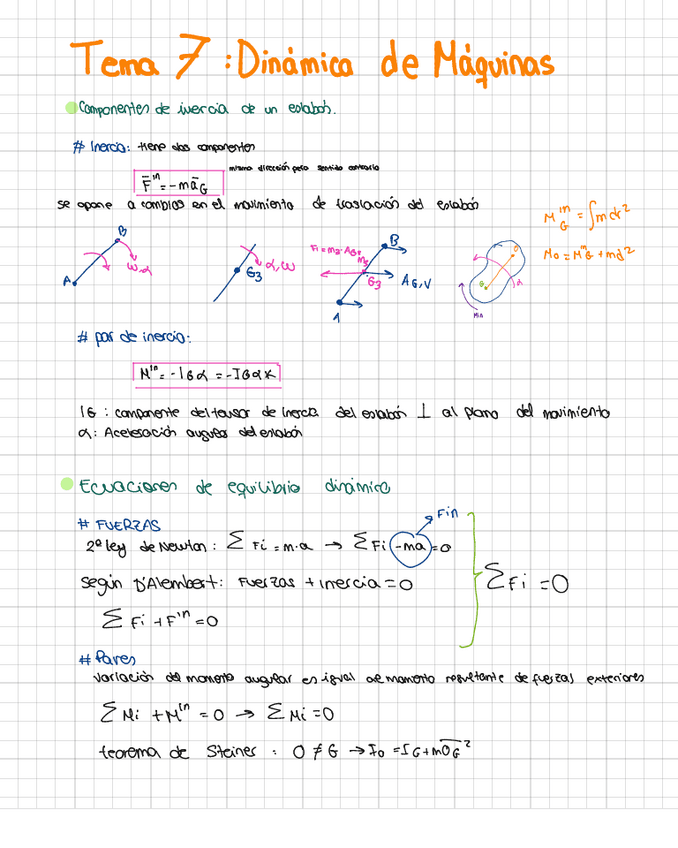 Tema 7 : Dinámica de Máquinas
Componentes de inercia de un eslabón.
# Inercia: tiene dos componentes
misma dirección pero sentido contrario
F̄ⁱⁿ = -māG
se opone a cambios en el movimiento de traslación del eslabón
M_Gⁱⁿ = ∫mdr²
M₀ = Mⁱⁿ_G + md²
B
A
ω,α
G3
α,ω
B
G3
AG,V
A
G
O
α
Min
# par de inercia:
Mⁱⁿ = -IGα = -IGαK
IG : componente del tensor de inercia del eslabón ⊥ al plano del movimiento
α: Aceleración angular del eslabón
Ecuaciones de equilibrio dinámico
# FUERZAS
Fin
2ª ley de Newton: ∑ Fi = m·a → ∑ Fi -ma = 0
según D'Alembert: Fuerzas + inercia = 0
∑ Fi = 0
∑ Fi + Fⁱⁿ = 0
# Pares
variación del momento angular es igual al momento resultante de fuerzas exteriores
∑ Mi + Mⁱⁿ = 0 → ∑ Mi = 0
teorema de Steiner : O ≠ G → Io = IG + mOG²